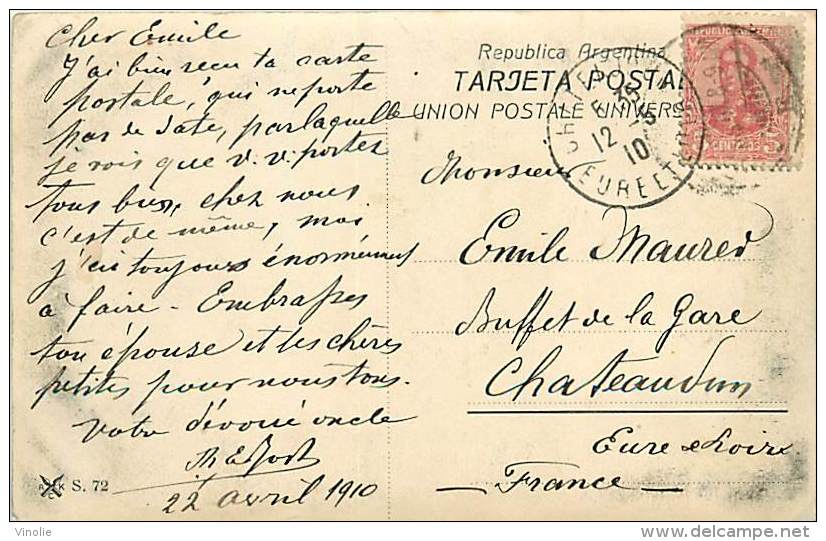 Cher Emile
J'ai bien recu ta carte
postale, qui ne porte
pas de date, par laquelle
je vois que v. v. portez
tous bien, chez nous
c'est de même, moi
j'ai toujours énormément
à faire - Embrasses
ton épouse et les chères
petites pour nous tous.
Votre dévoué oncle
22 avril 1910
S. 72
Republica Argentina
TARJETA POSTAL
UNION POSTALE UNIVERS
12 - 5
10
EURE ET
CENTAVOS
Monsieur
Emile
Buffet de la Gare
Chateaudun
Eure & Loir
- France -
Vinolie
delcampe.net